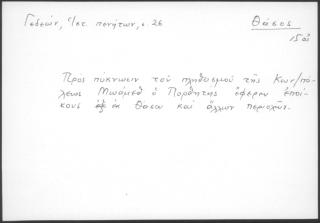 Γεδεών, Πατ. πινάκων, σ. 26
Θάσος
15 αἰ
Προς πύκνωσιν τοῦ πληθυσμοῦ τῆς Κων/πό-
λεως Μωάμεθ ὁ Πορθητης ἔφερεν ἐποί-
κους ἐκ Θάσου καὶ ἄλλων περιοχῶν.